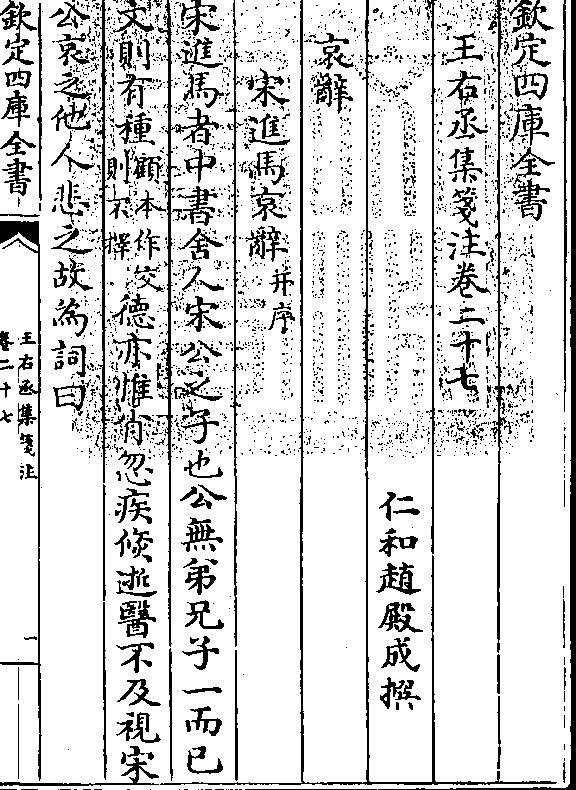 欽定四庫全書
王右丞集箋注卷二十七
仁和趙殿成撰
哀辭
宋進馬哀辭并序
宋進馬者中書舍人宋公之子也公無弟兄子一而已
文則有種顧本作交則不擇德亦惟肖忽疾倐逝醫不及視宋
公哀之他人悲之故為詞曰
欽定四庫全書
王右丞集箋注
卷二十七
一